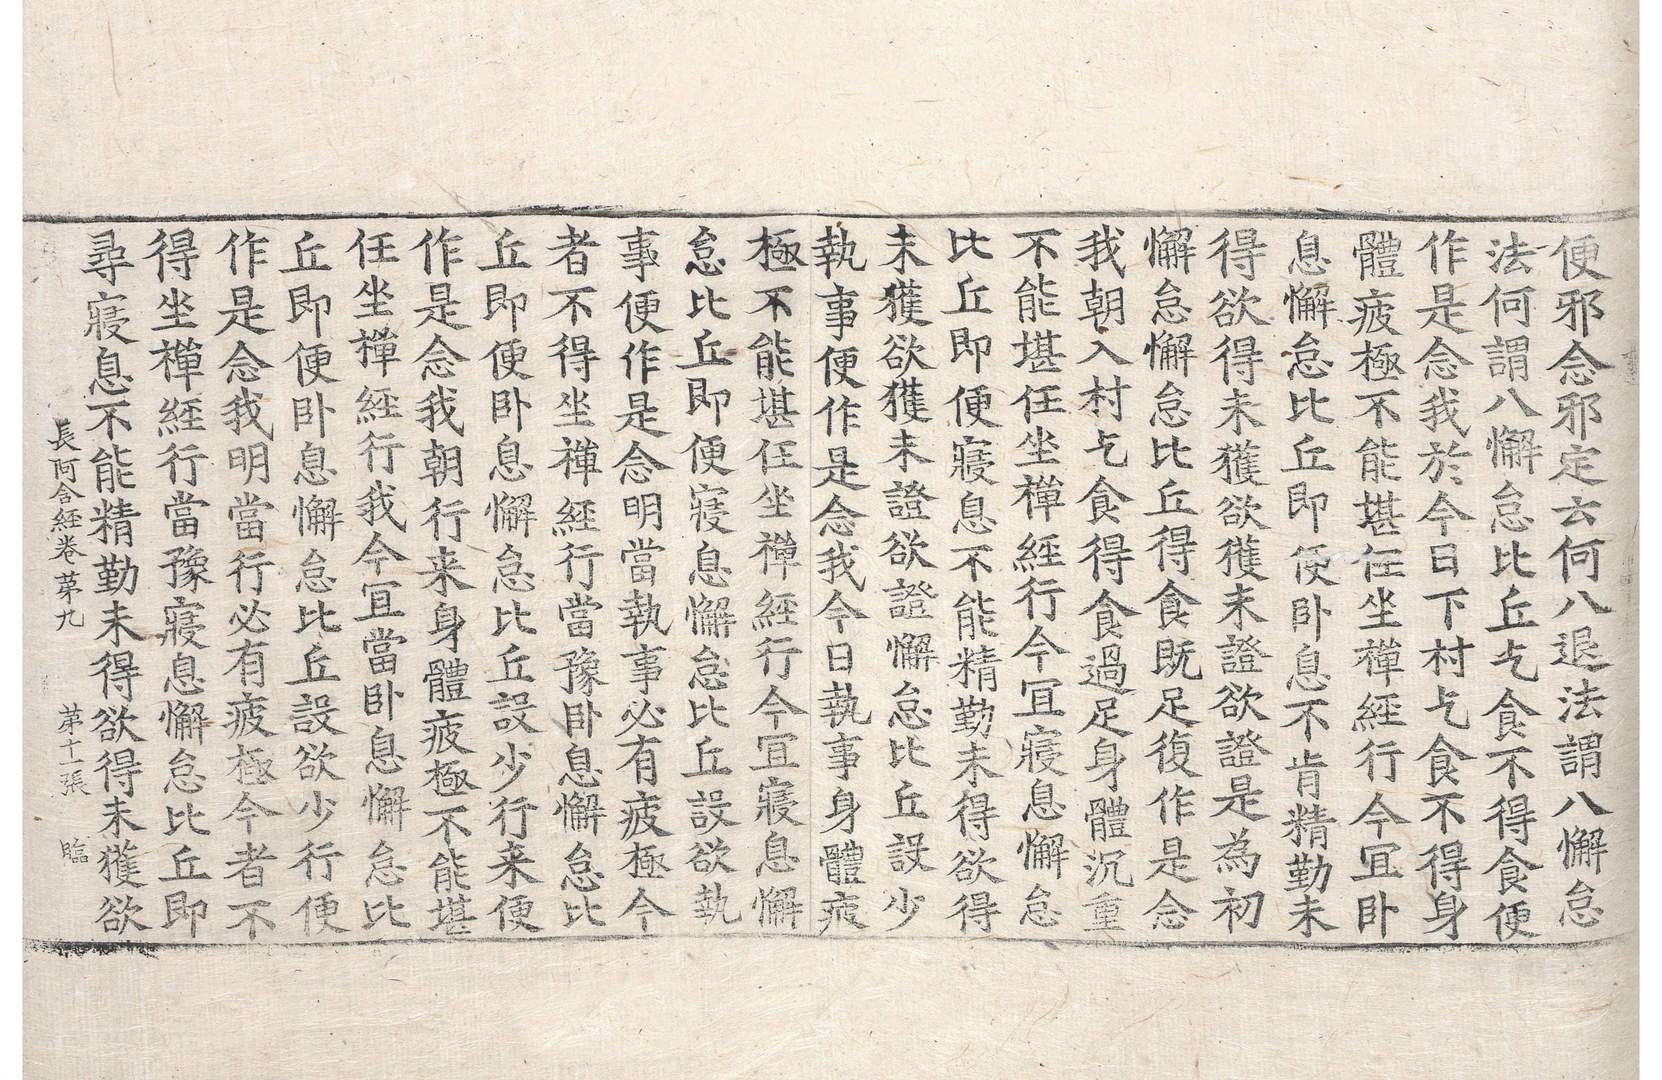 便邪念邪定云何八退法謂八懈怠
法何謂八懈怠比丘乞食不得食便
作是念我於今日下村乞食不得身
體疲極不能堪任坐禪經行今冝卧
息懈怠比丘即便卧息不肯精勤未
得欲得未獲欲獲未證欲證是為初
懈怠懈怠比丘得食既足復作是念
我朝入村乞食得食過足身體沉重
不能堪任坐禪經行今冝寢息懈怠
比丘即便寢息不能精勤未得欲得
未獲欲獲未證欲證懈怠比丘設少
執事便作是念我今日執事身體疲
極不能堪任坐禪經行今冝寢息懈
怠比丘即便寢息懈怠比丘設欲執
事便作是念明當執事必有疲極今
者不得坐禪經行當豫卧息懈怠比
丘即便卧息懈怠比丘設少行来便
作是念我朝行来身體疲極不能堪
任坐禪經行我今冝當卧息懈怠比
丘即便卧息懈怠比丘設欲少行便
作是念我明當行必有疲極今者不
得坐禪經行當豫寢息懈怠比丘即
尋寢息不能精勤未得欲得未獲欲
長阿含經卷第九 第十一張 臨